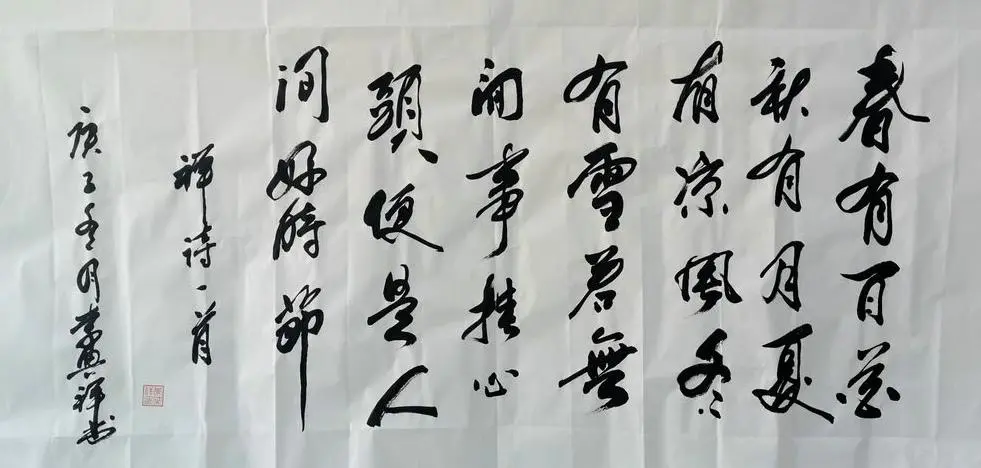 春有百花
秋有月夏
有凉風冬
有雪若無
闲事挂心
頭便是人
间好時節
禅诗一首
庚子冬月李祥书